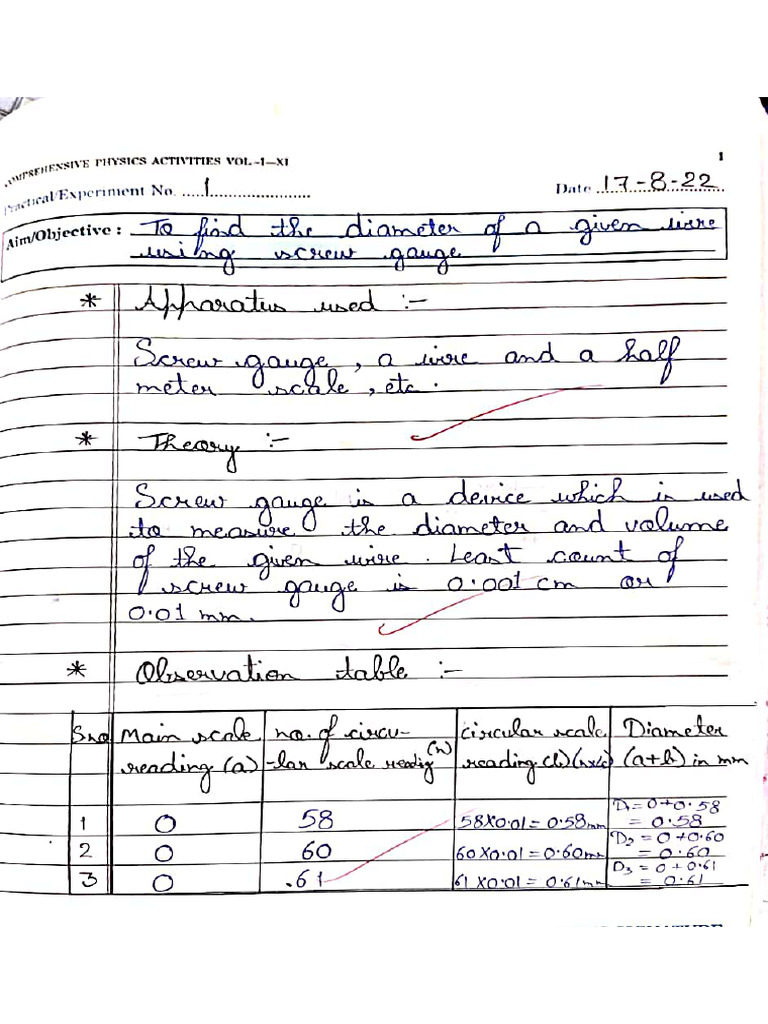 COMPREHENSIVE PHYSICS ACTIVITIES VOL.-1—XI
1
Practical/Experiment No. 1
Date 17-8-22
Aim/Objective : To find the diameter of a given wire
using screw gauge
* Apparatus used :-
Screw gauge, a wire and a half
meter scale, etc.
* Theory :-
Screw gauge is a device which is used
to measure the diameter and volume
of the given wire. Least count of
screw gauge is 0.001 cm or
0.01 mm.
* Observation table :-
S.no Main scale no. of circu- circular scale Diameter
reading (a) -lar scale readig (n) reading (b) (nxlc) (a+b) in mm
1 0 58 58X0.01 = 0.58mm D1 = 0+0.58
= 0.58
2 0 60 60X0.01 = 0.60mm D2 = 0+0.60
= 0.60
3 0 .61 61X0.01 = 0.61mm D3 = 0+0.61
= 0.61